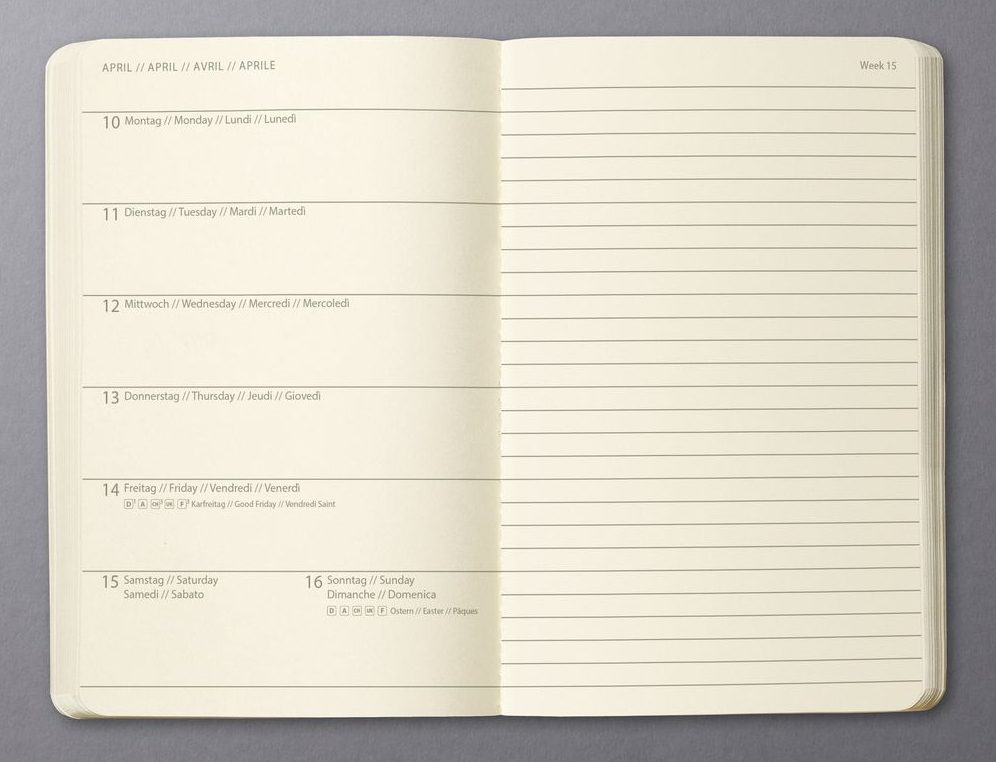 APRIL // APRIL // AVRIL // APRILE
10 Montag // Monday // Lundi // Lunedì
11 Dienstag // Tuesday // Mardi // Martedì
12 Mittwoch // Wednesday // Mercredi // Mercoledì
13 Donnerstag // Thursday // Jeudi // Giovedì
14 Freitag // Friday // Vendredi // Venerdì
D¹ A CH² UK F³ Karfreitag // Good Friday // Vendredi Saint
15 Samstag // Saturday
Samedi // Sabato
16 Sonntag // Sunday
Dimanche // Domenica
D A CH UK F Ostern // Easter // Pâques
Week 15